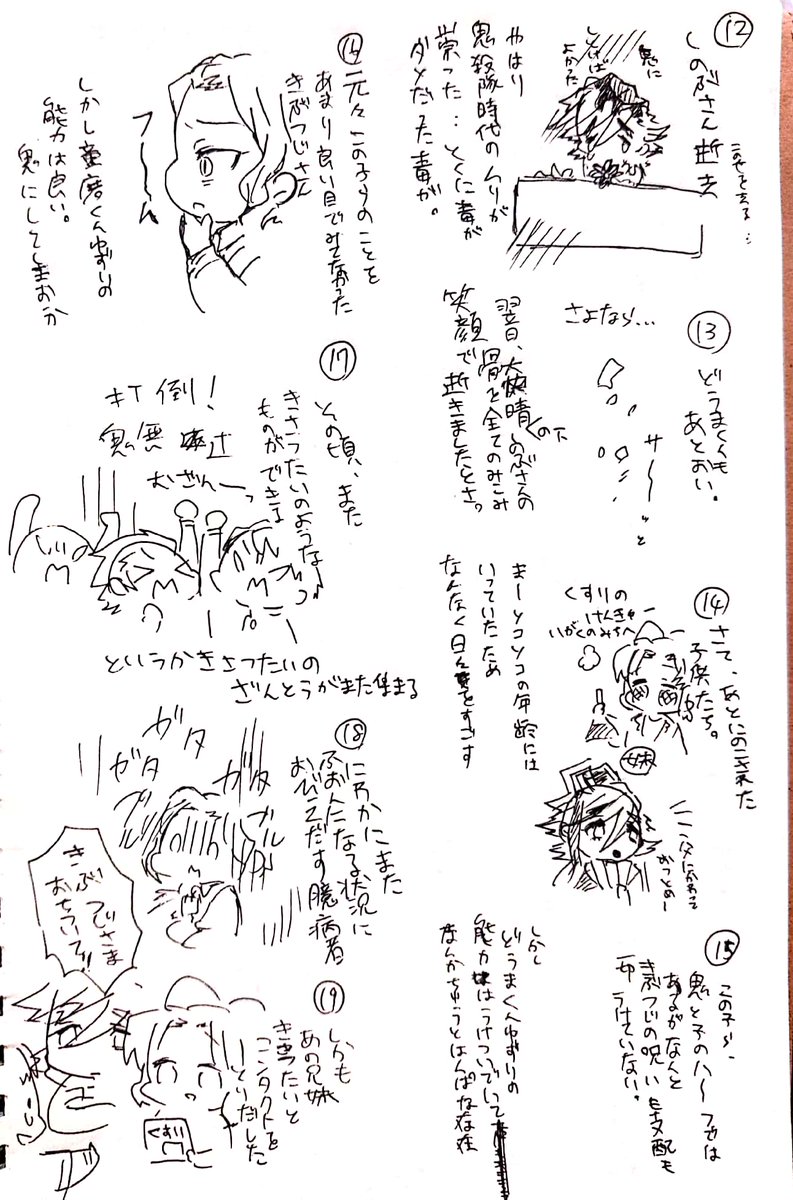 ⑫
しのぶさん逝去
鬼に
しとけば
よかった
やはり
鬼殺隊時代のムリが
祟った…とくに毒が
ダメだった毒が。
⑬
どうまくんも
あとおい。
さよなら…
サ〜ッと
翌日、大快晴の下
しのぶさんの
骨を全てのみこみ
笑顔で逝きましたとさ。
⑭
さて、あとにのこされた
子供たち。
くすりの
けんきゅー
いがくのみちへ
妹
父にかわって
がっとめー
まーソコソコの年齢には
いっていたため
なんなく日々をすごす
⑮
この子ら、
鬼と子のハーフでは
あるがなんと
きぶつじの呪いも支配も
一切うけていない。
しかし
どうまくんゆずりの
能力はうけついでいて
なんかちゅうとはんぱな存在
⑯
元々この子らのことを
あまり良い目でみてなかった
きぶつじさん
ふーん
しかし童磨くんゆずりの
能力は良い。
鬼にしてしまおか
⑰
その頃、また
きさつたいのような
ものができる
打倒!
鬼無辻
むざんーっ
というかきさつたいの
ざんとうがまた集まる
⑱
にわかにまた
ふおんになる状況に
おびえだす臆病者
ガタ
ガタ
ガタ
ブル
ブル
きぶつじさま
おちついて!!
⑲
しかも
あの兄妹
きさつたいと
コンタクトを
といだした
くすり